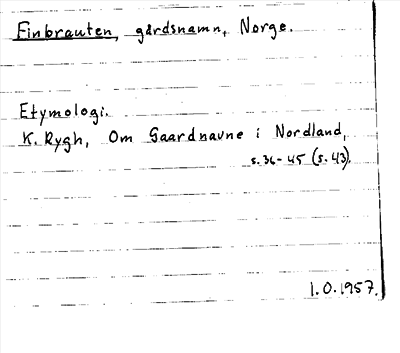 Finbrauten, gårdsnamn, Norge.
Etymologi.
K. Rygh, Om Gaardnavne i Nordland,
s. 36-45 (s. 43).
I.O. 1957.